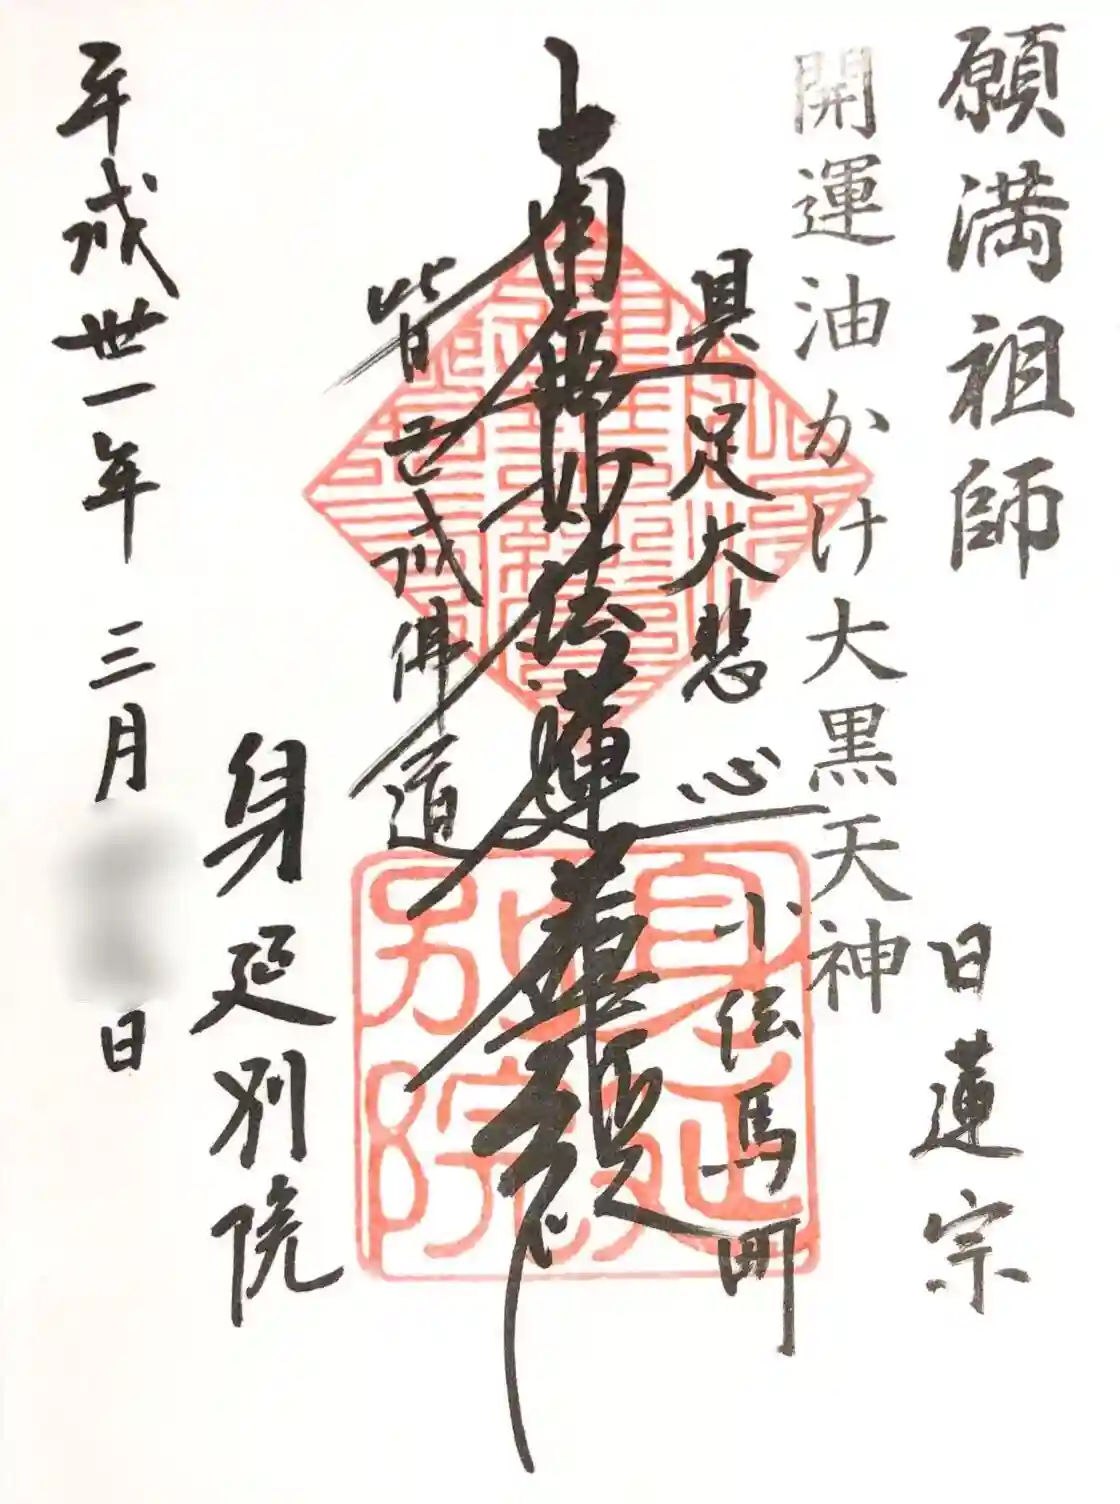 願満祖師
日蓮宗
開運油かけ大黒天神
小伝馬町
具足大悲心
南無妙法蓮華経
皆已成佛道
身延別院
平成丗一年 三月 日
身延
別院